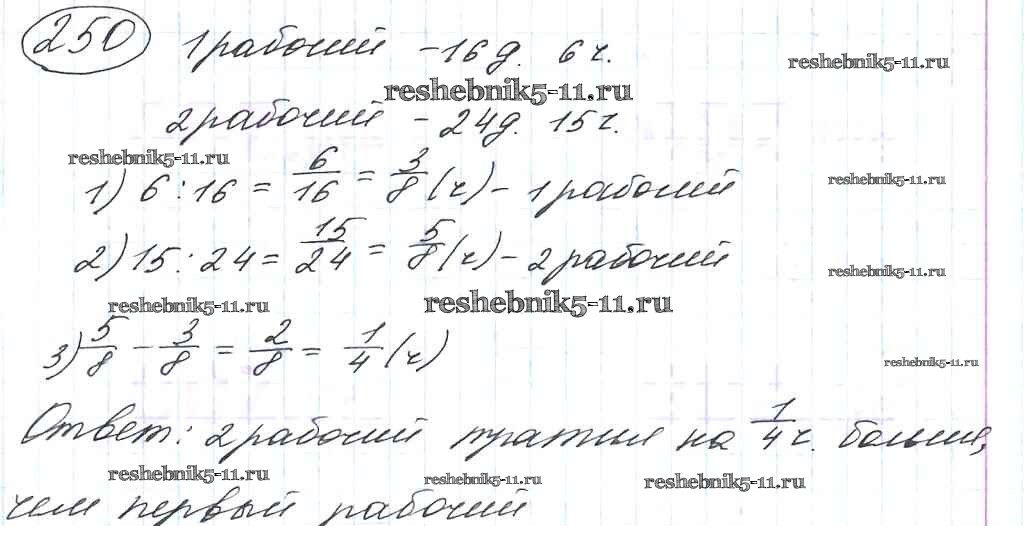 250 1 рабочий - 16 д. 6 ч.
reshebnik5-11.ru
reshebnik5-11.ru
2 рабочий - 24 д. 15 ч.
reshebnik5-11.ru
1) 6 : 16 = 6/16 = 3/8 (ч) - 1 рабочий
reshebnik5-11.ru
2) 15 : 24 = 15/24 = 5/8 (ч) - 2 рабочий
reshebnik5-11.ru
reshebnik5-11.ru reshebnik5-11.ru
3) 5/8 - 3/8 = 2/8 = 1/4 (ч)
reshebnik5-11.ru
Ответ: 2 рабочий тратил на 1/4 ч. больше,
reshebnik5-11.ru reshebnik5-11.ru reshebnik5-11.ru
чем первый рабочий